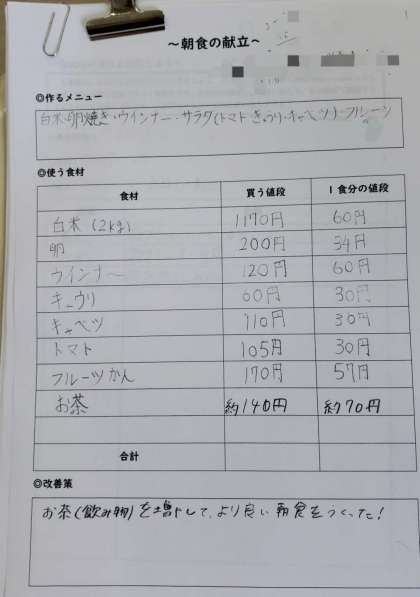 ～朝食の献立～
◎作るメニュー
白米・卵焼き・ウインナー・サラダ(トマト・きゅうり・キャベツ)・フルーツ
◎使う食材
食材 買う値段 1食分の値段
白米 (2kg) 1170円 60円
卵 200円 34円
ウインナー 120円 60円
キュウリ 60円 30円
キャベツ 110円 30円
トマト 105円 30円
フルーツかん 170円 57円
お茶 約140円 約70円
合計
◎改善策
お茶(飲み物)を増やして、より良い朝食をつくった!